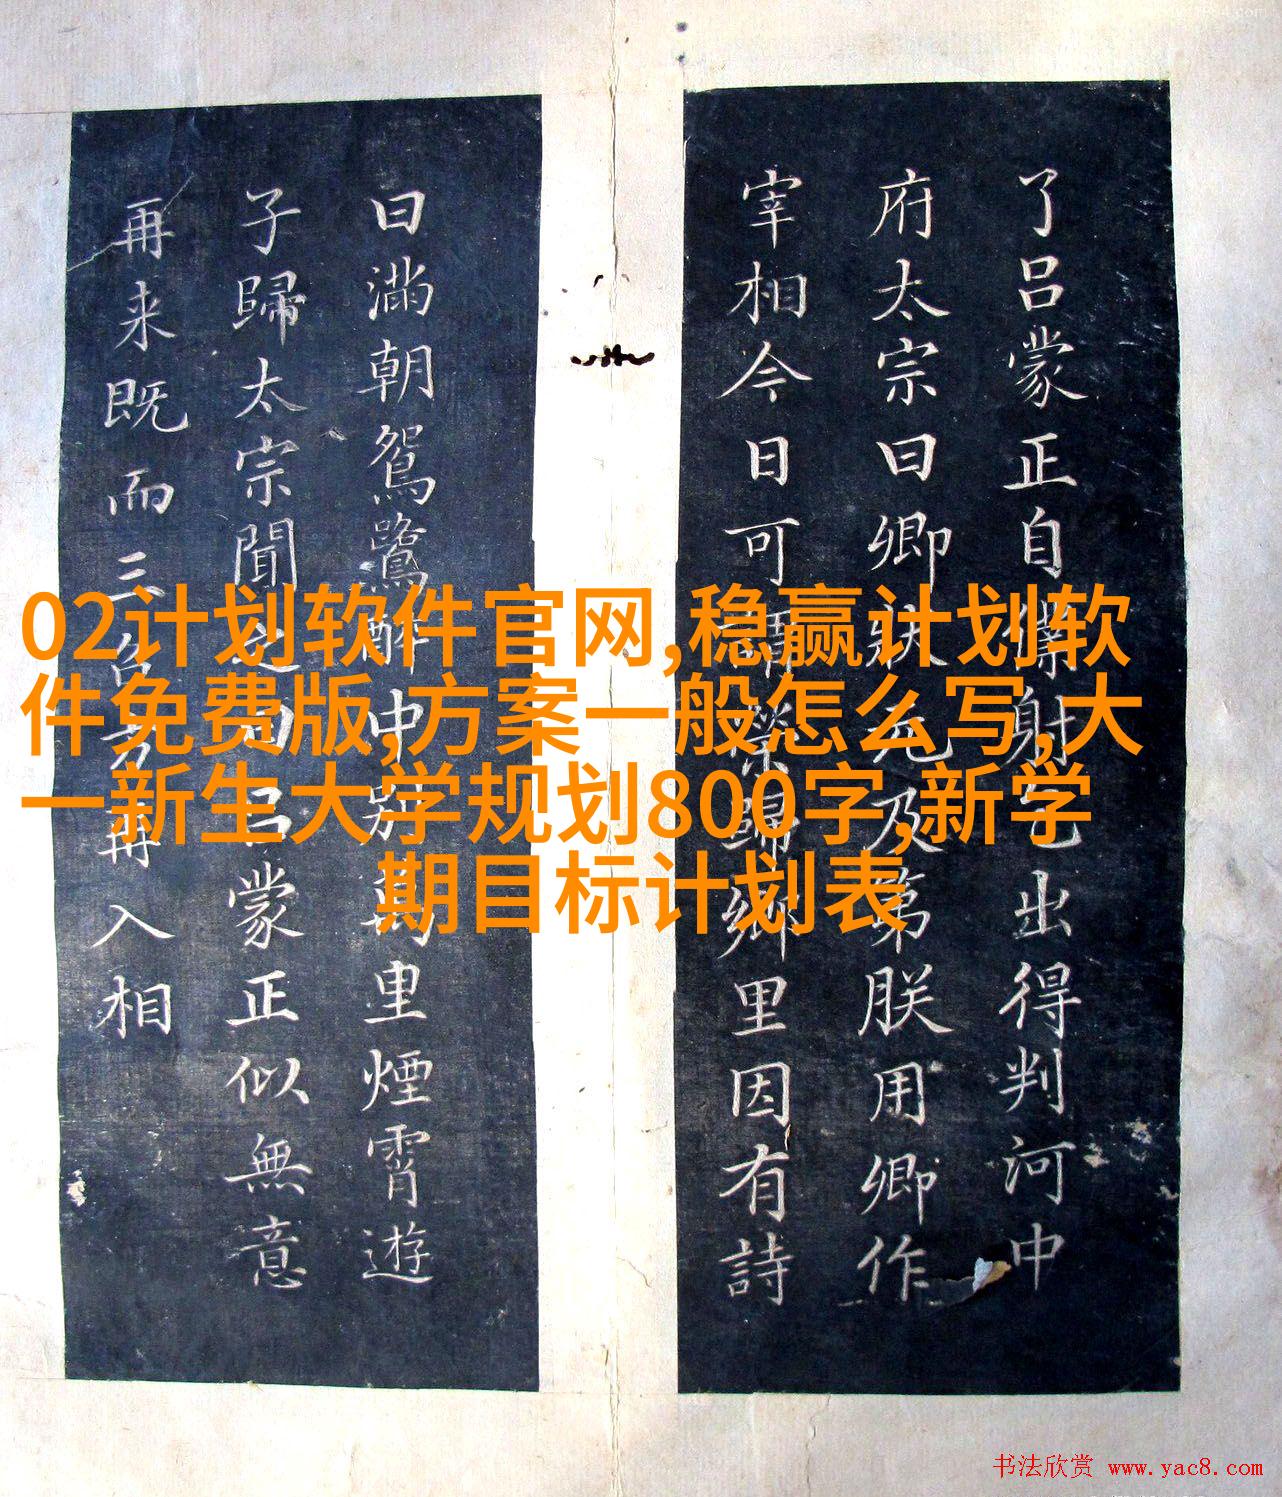 了吕蒙正自僕射乞出得判河中
府太宗曰卿狀元及第朕用卿作
宰相今日可謂榮歸鄉里因有詩
曰滿朝鴛鷺醉中別萬里煙霄遊
子歸太宗聞之曰吕蒙正似無意
再来既而三年乃再入相
02计划软件官网,稳赢计划软
件免费版,方案一般怎么写,大
一新生大学规划800字,新学
期目标计划表
书法欣赏 www.yac8.com